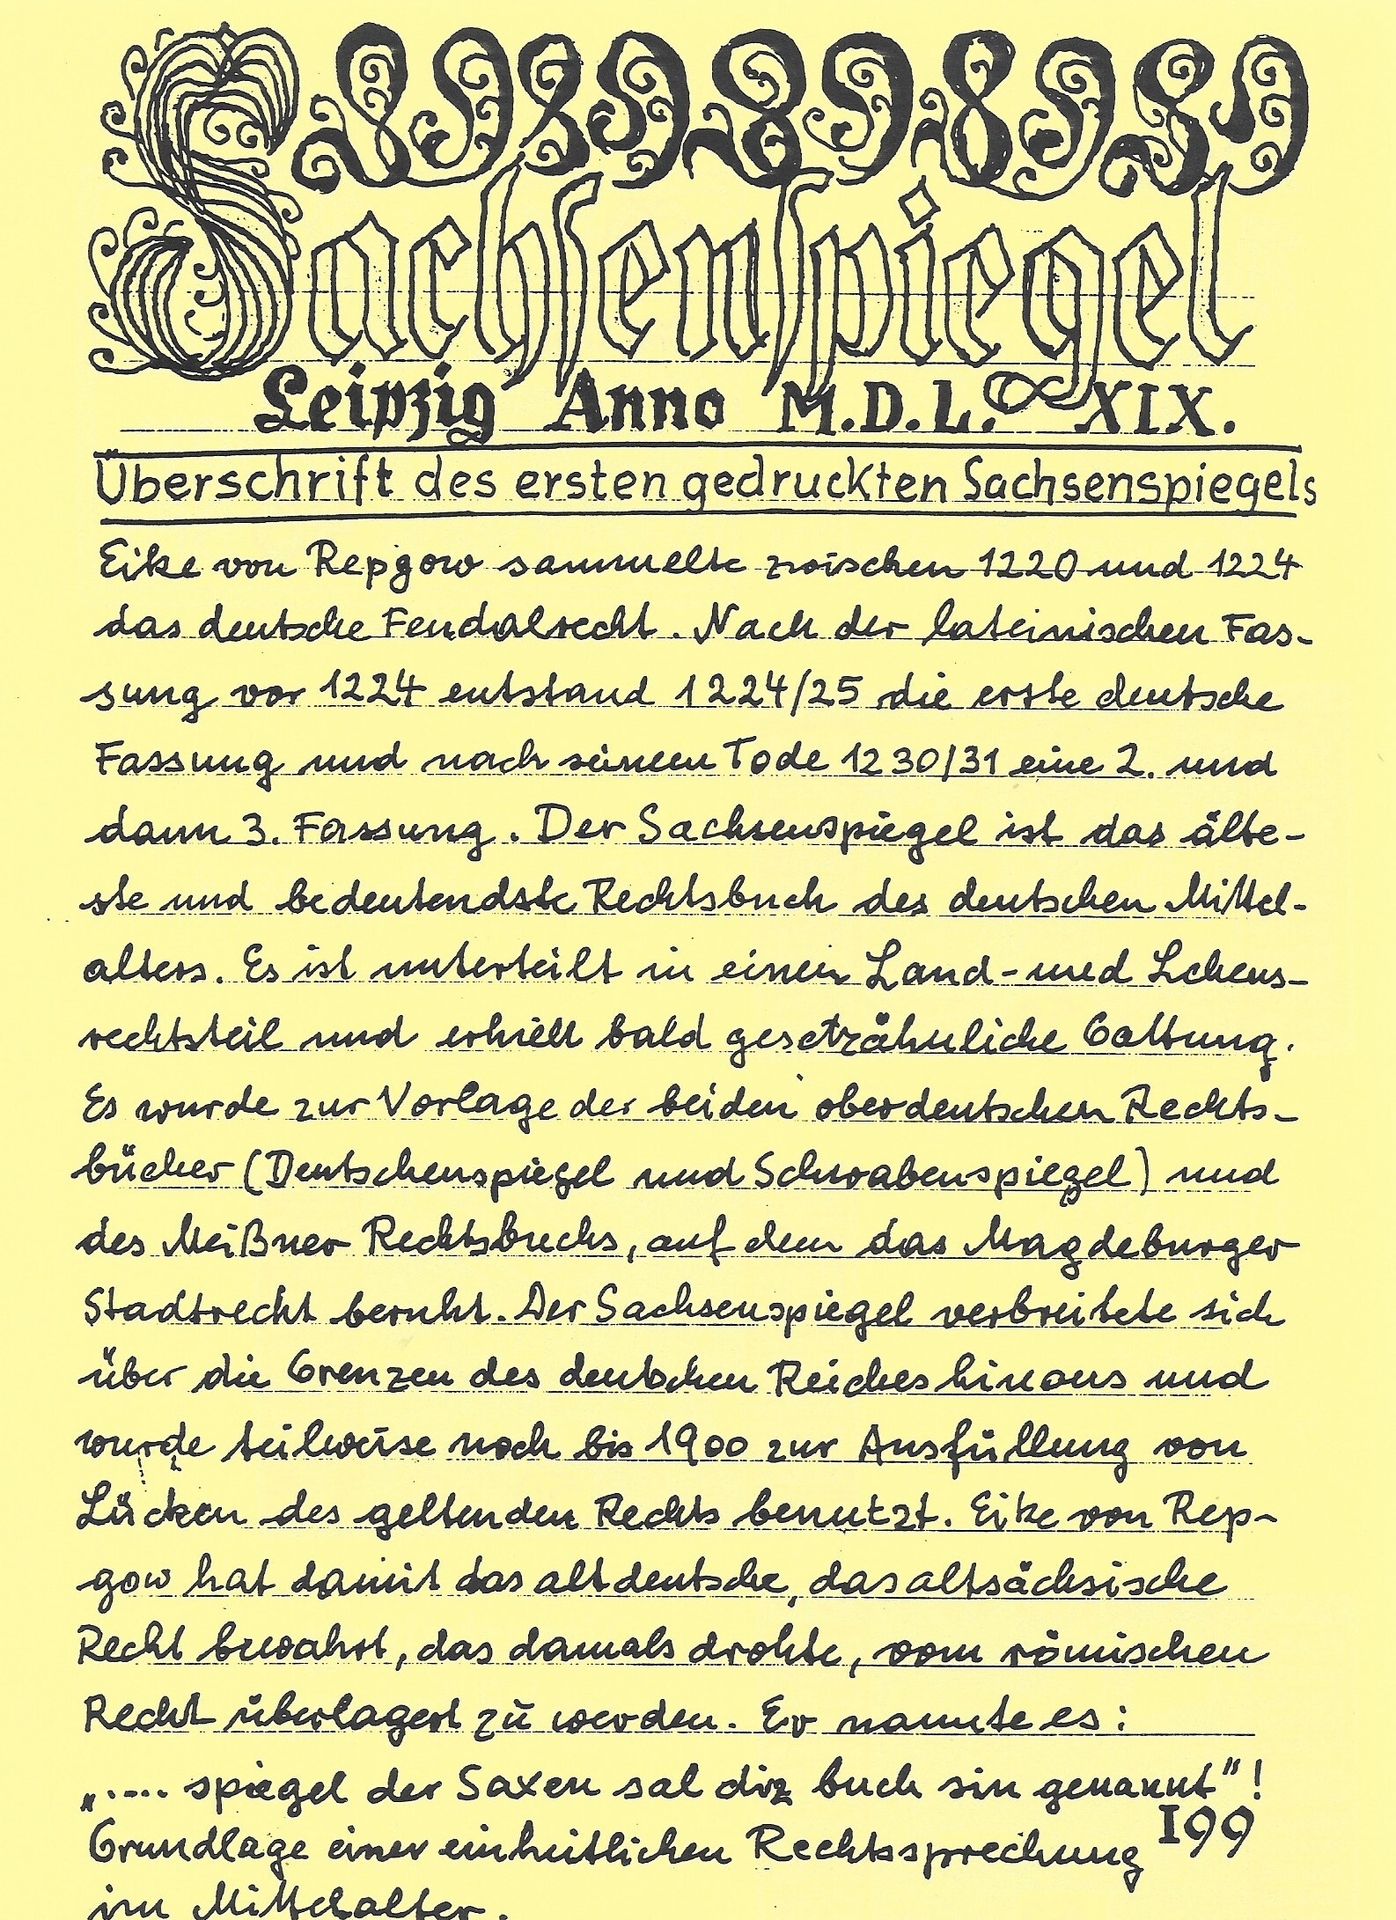 Sachsenspiegel
Leipzig Anno M.D.L. XIX.
Überschrift des ersten gedruckten Sachsenspiegels
Eike von Repgow sammelte zwischen 1220 und 1224
das deutsche Feudalrecht. Nach der lateinischen Fas-
sung vor 1224 entstand 1224/25 die erste deutsche
Fassung und nach seinem Tode 1230/31 eine 2. und
dann 3. Fassung. Der Sachsenspiegel ist das älte-
ste und bedeutendste Rechtsbuch des deutschen Mittel-
alters. Es ist unterteilt in einen Land- und Lehens-
rechtsteil und erhielt bald gesetzähnliche Geltung.
Es wurde zur Vorlage der beiden oberdeutschen Rechts-
bücher (Deutschenspiegel und Schwabenspiegel) und
des Meißner Rechtsbuchs, auf dem das Magdeburger
Stadtrecht beruht. Der Sachsenspiegel verbreitete sich
über die Grenzen des deutschen Reiches hinaus und
wurde teilweise noch bis 1900 zur Ausfüllung von
Lücken des geltenden Rechts benutzt. Eike von Rep-
gow hat damit das altdeutsche, das altsächsische
Recht bewahrt, das damals drohte, vom römischen
Recht überlagert zu werden. Er nannte es:
"..... spiegel der Saxen sal diz buch sin genannt"!
Grundlage einer einheitlichen Rechtssprechung
199
im Mittelalter.